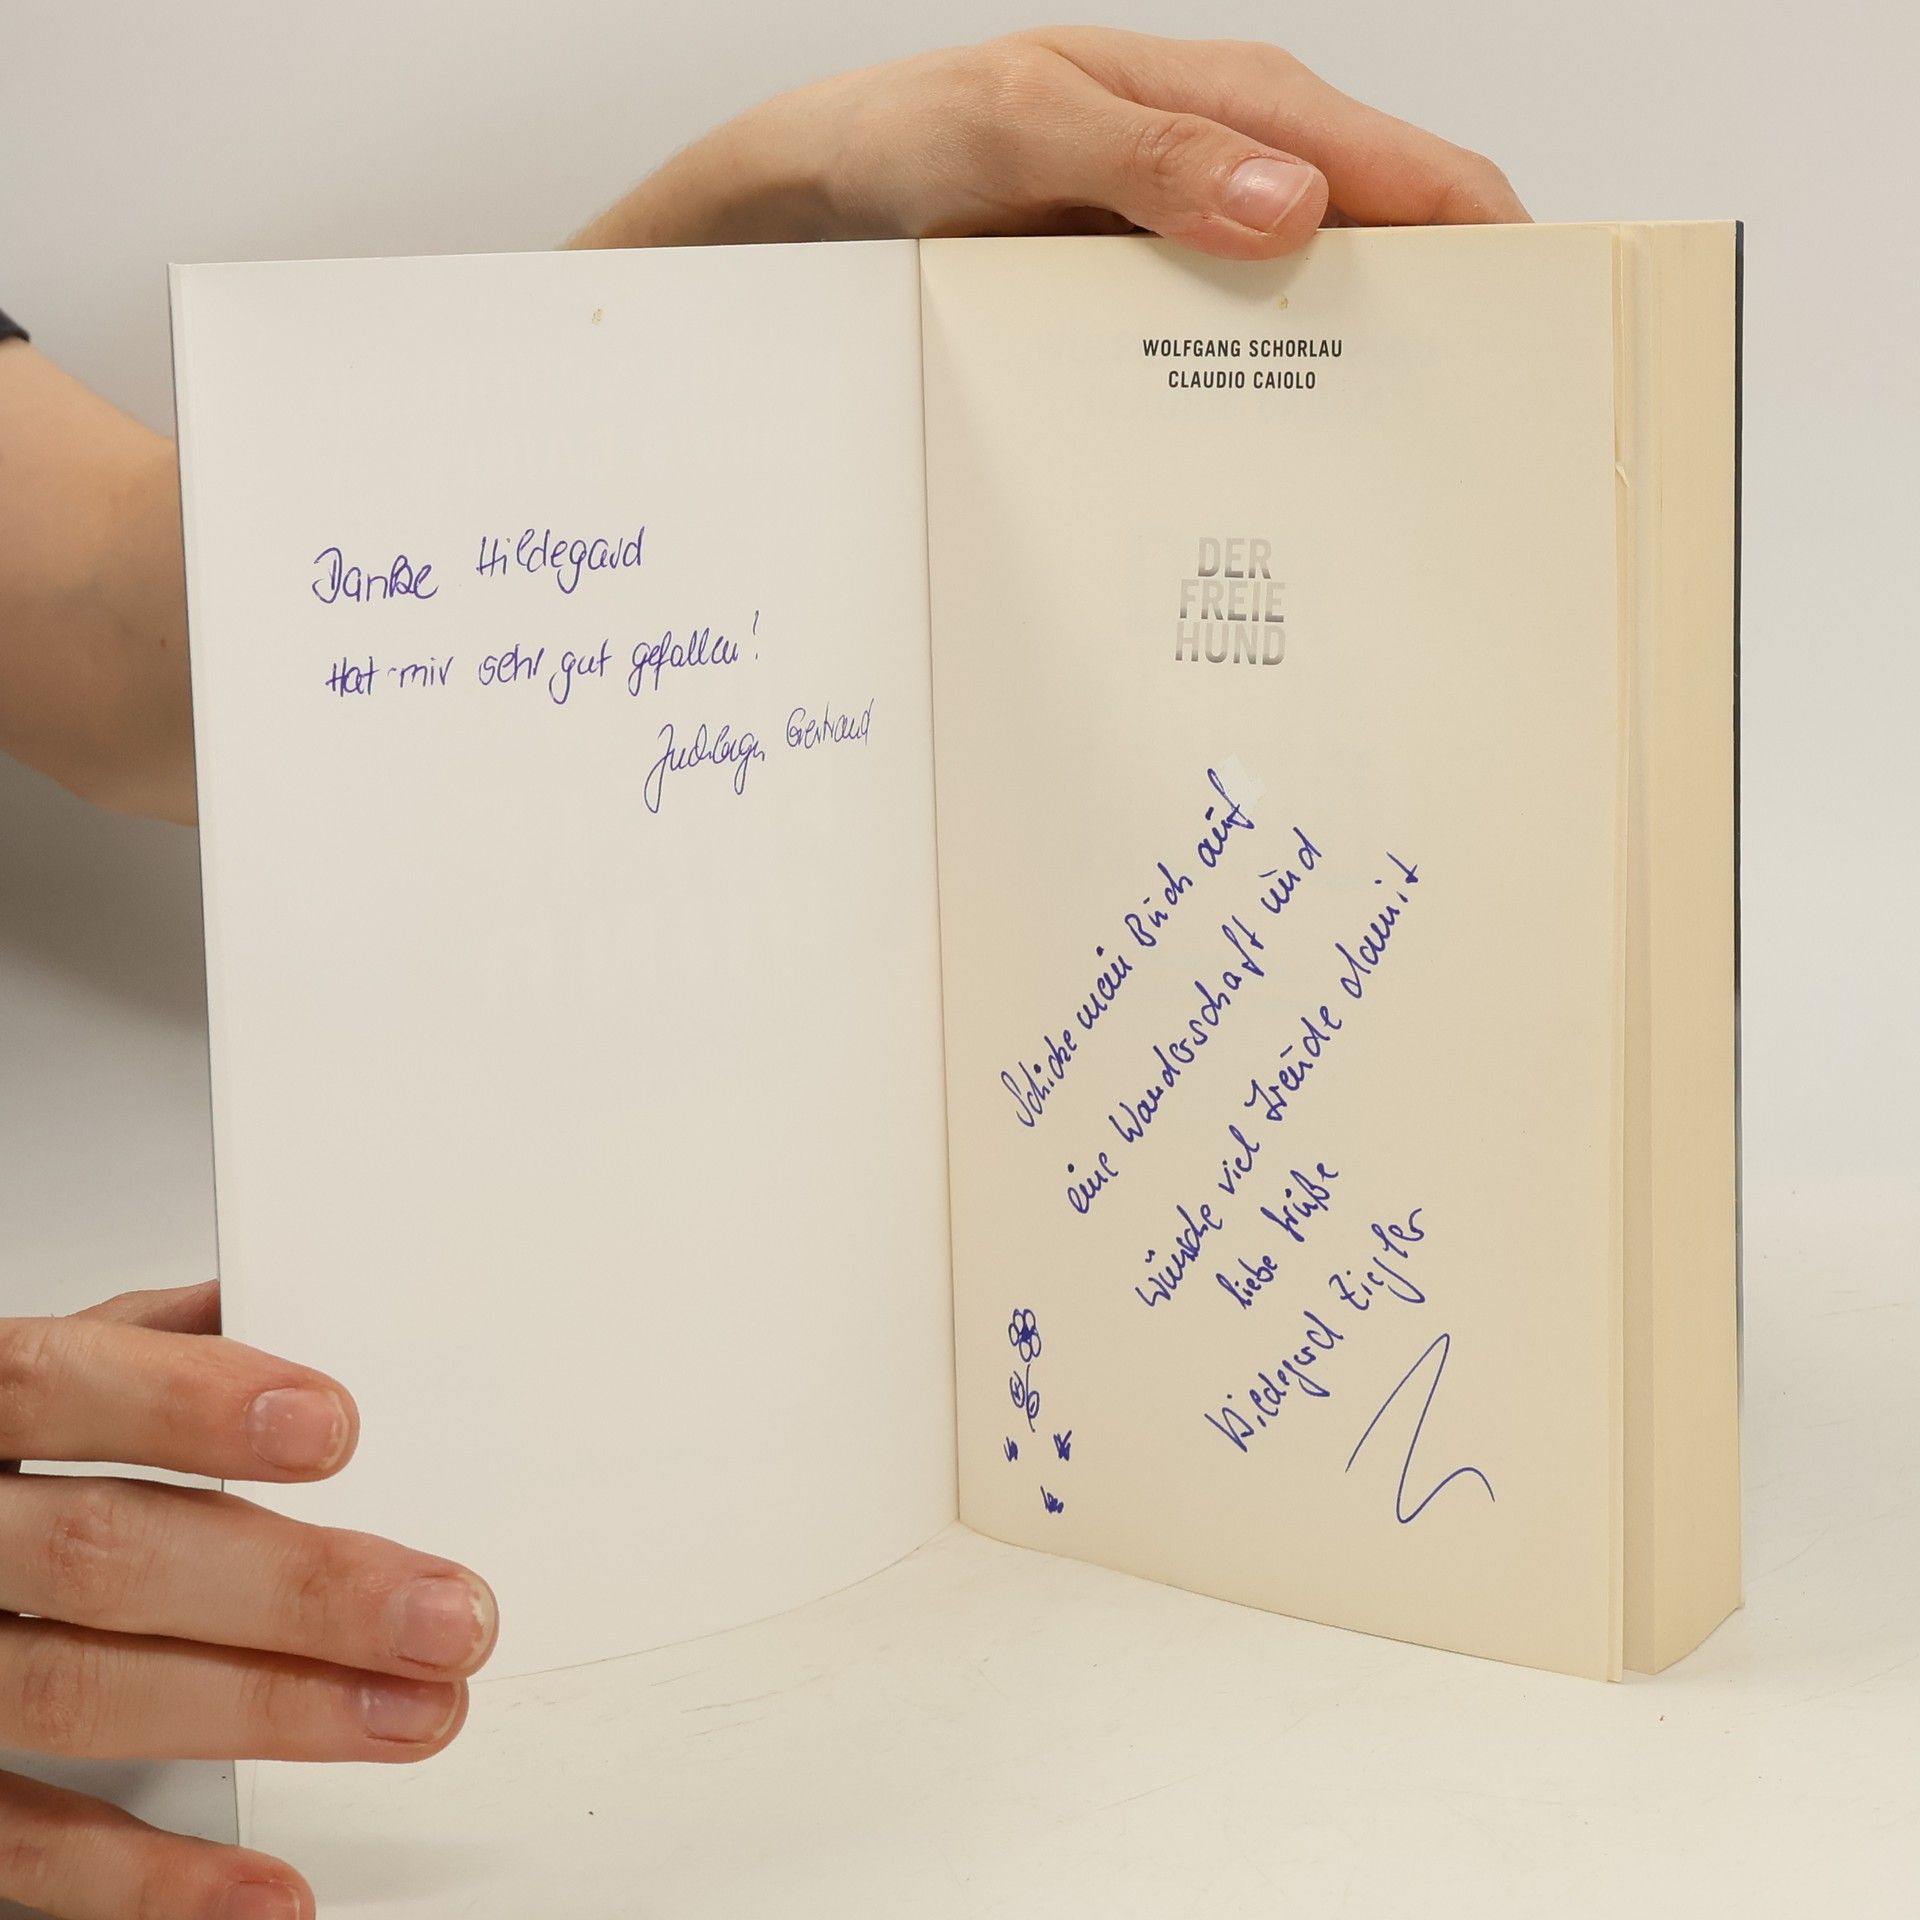 Danke Hildegard
Hat mir sehr gut gefallen!
Gertraud
WOLFGANG SCHORLAU
CLAUDIO CAIOLO
DER
FREIE
HUND
Schicke mein Buch auf
eine Wanderschaft und
wünsche viel Freude damit
liebe Grüße
Hildegard Ziegler